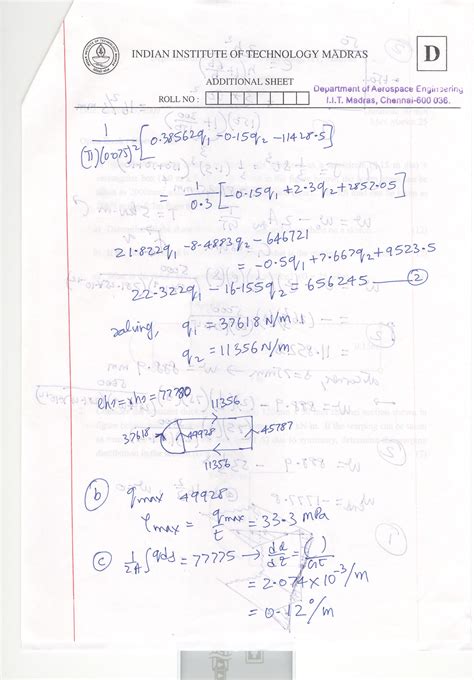 INDIAN INSTITUTE OF TECHNOLOGY MADRAS
D
ADDITIONAL SHEET
Department of Aerospace Engineering
I.I.T. Madras, Chennai-600 036.
ROLL NO :
1/(π)(0.075)² [0.38562q₁ -0.15q₂ -11428.5]
= 1/0.3 [-0.15q₁ +2.3q₂ +2857.05]
21.822q₁ -8.4883q₂ -646721
= -0.5q₁ +7.667q₂ +9523.5
22.322q₁ -16.155q₂ = 656245 — (2)
solving, q₁ = 37618 N/m
q₂ = 11356 N/m
11356
37618 49928 45787
11356
(b) qmax 49928
τmax = qmax/t = 33.3 MPa
(c) 1/2A ∫qds = 77775 → dα/dz = ( )/Gt
= 2.074×10⁻³/m
= 0.12°/m